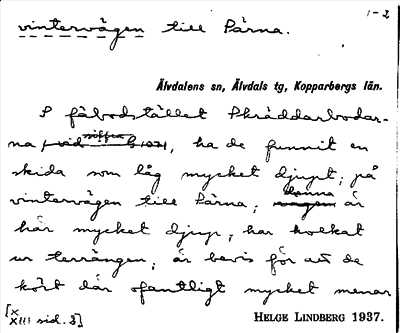 1-2
vintervägen till Särna.
Älvdalens sn, Älvdals tg, Kopparbergs län.
I fäbodstället Skräddarbodar-
na, ha de funnit en
skida som låg mycket djupt; på
vintervägen till Särna; denna är
här mycket djup, har holkat
ur terrängen; är bevis för att de
kört där ofantligt mycket menar
[x
XIII sid. 3]
HELGE LINDBERG 1937.